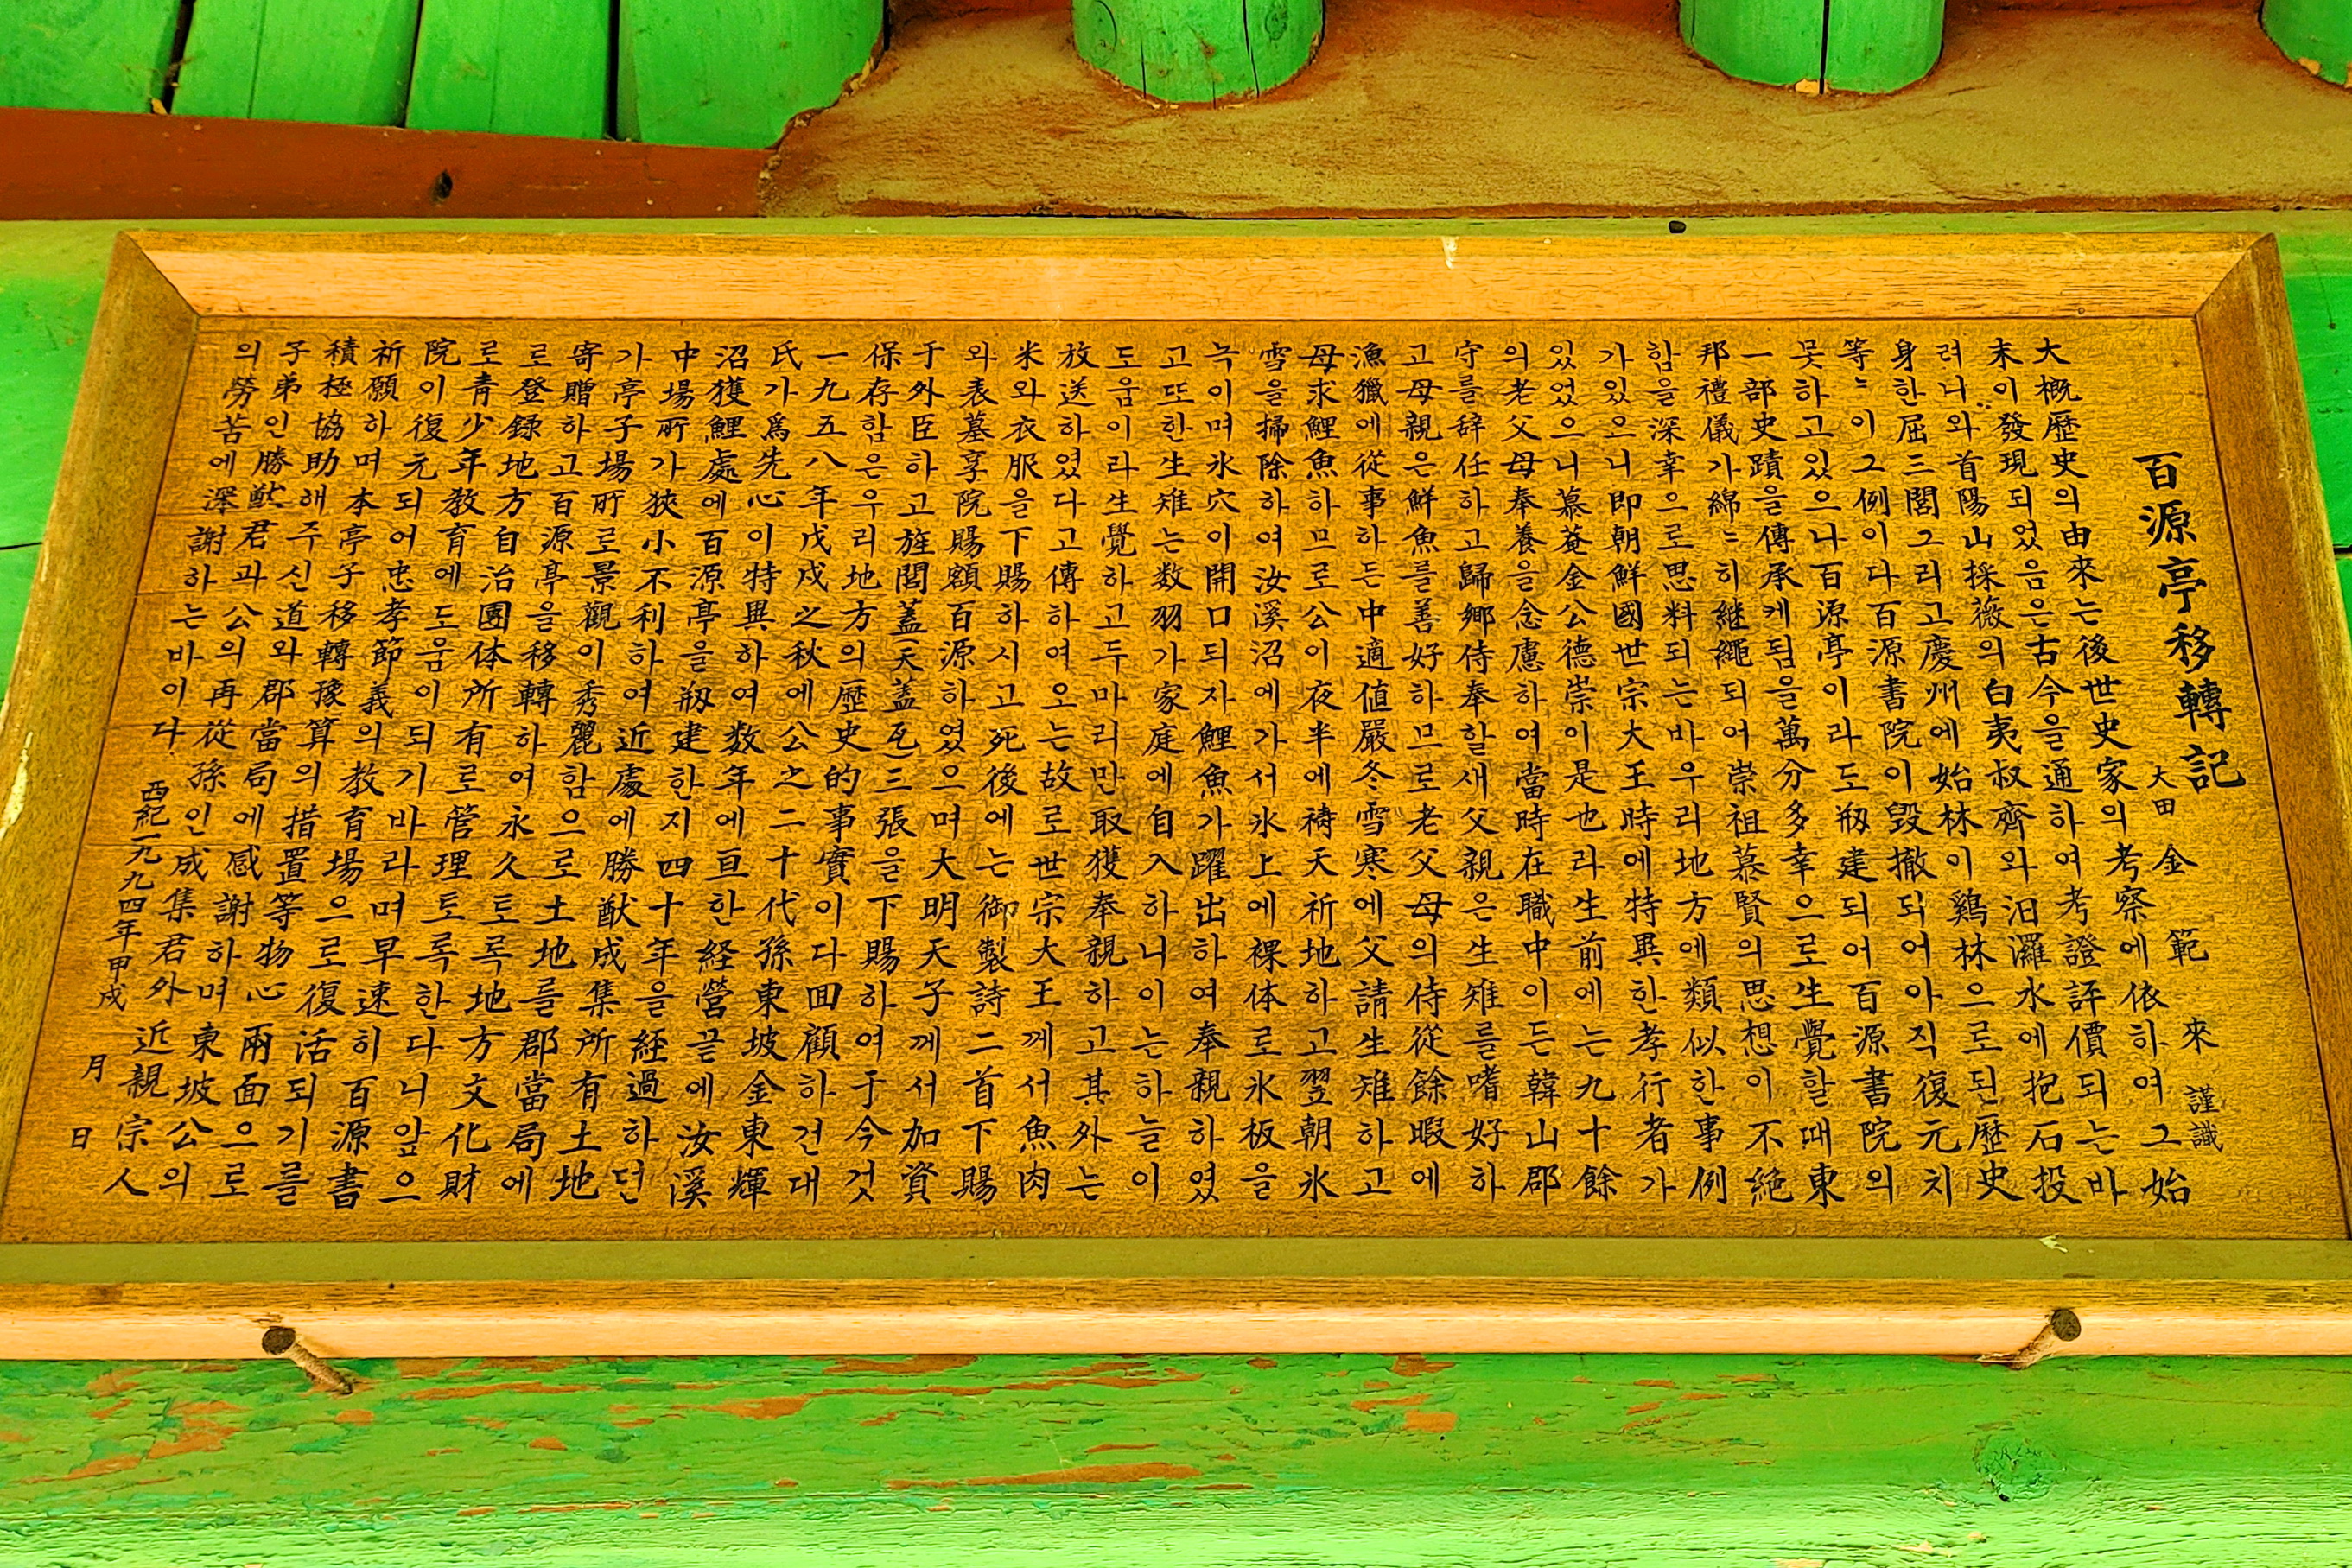 百源亭移轉記
大田 金範來 謹識
大概歷史의由來는後世史家의考察에依하여그始
末이發現되었음은古今을通하여考證評價되는바
려니와首陽山採薇의白夷叔齊와汨灑水에抱石投
身한屈三閭그리고慶州에始林이鷄林으로된歷史
等〻이그例이다百源書院이毁撤되어아직復元치
못하고있으나百源亭이라도刱建되여百源書院의
一部史蹟을傳承케됨을萬分多幸으로生覺할때東
邦禮儀가綿〻히継繩되여崇祖慕賢의思想이不絶
함을深幸으로思料되는바우리地方에類似한事例
가있으니即朝鮮國世宗大王時에特異한孝行者가
있었으니慕菴金公德崇이是也라生前에는九十餘
의老父母奉養을念慮하여當時在職中이든韓山郡
守를辞任하고歸鄉侍奉할새父親은生雉를嗜好하
고母親은鮮魚를善好하므로老父母의侍從餘暇에
漁獵에從事하든中適値嚴冬雪寒에父請生雉하고
母求鯉魚하므로公이夜半에禱天祈地하고翌朝氷
雪을掃除하여汝溪沼에가서氷上에裸体로氷板을
녹이며氷穴이開口되자鯉魚가躍出하여奉親하였
고또한生雉는数羽가家庭에自入하니이는하늘이
도움이라生覺하고두마리만取獲奉親하고其外는
放送하였다고傳하여오는故로世宗大王께서魚肉
米와衣服을下賜하시고死後에는御製詩二首下賜
와表墓享院賜額百源하였으며大明天子께서加資
于外臣하고旌閭蓋天盖瓦三張을下賜하여于今것
保存함은우리地方의歷史的事實이다回顧하건대
一九五八年戊戌之秋에公之二十代孫東坡金東輝
氏가爲先心이特異하여数年에亘한経營끝에汝溪
沼獲鯉處에百源亭을刱建한지四十年을経過하던
中場所가狹小不利하여近處에勝猷成集所有土地
가亭子場所로景觀이秀麗함으로土地를郡當局에
寄贈하고百源亭을移轉하여永久토록地方文化財
로登録地方自治團体所有로管理토록한다니앞으
로青少年教育에도움이되기바라며早速히百源書
院이復元되어忠孝節義의教育場으로復活되기를
祈願하며本亭子移轉豫算의措置等物心兩面으로
積極協助해주신道와郡當局에感謝하며東坡公의
子弟인勝猷君과公의再從孫인成集君外近親宗人
의勞苦에深謝하는바이다.
西紀一九九四年甲戌 月 日